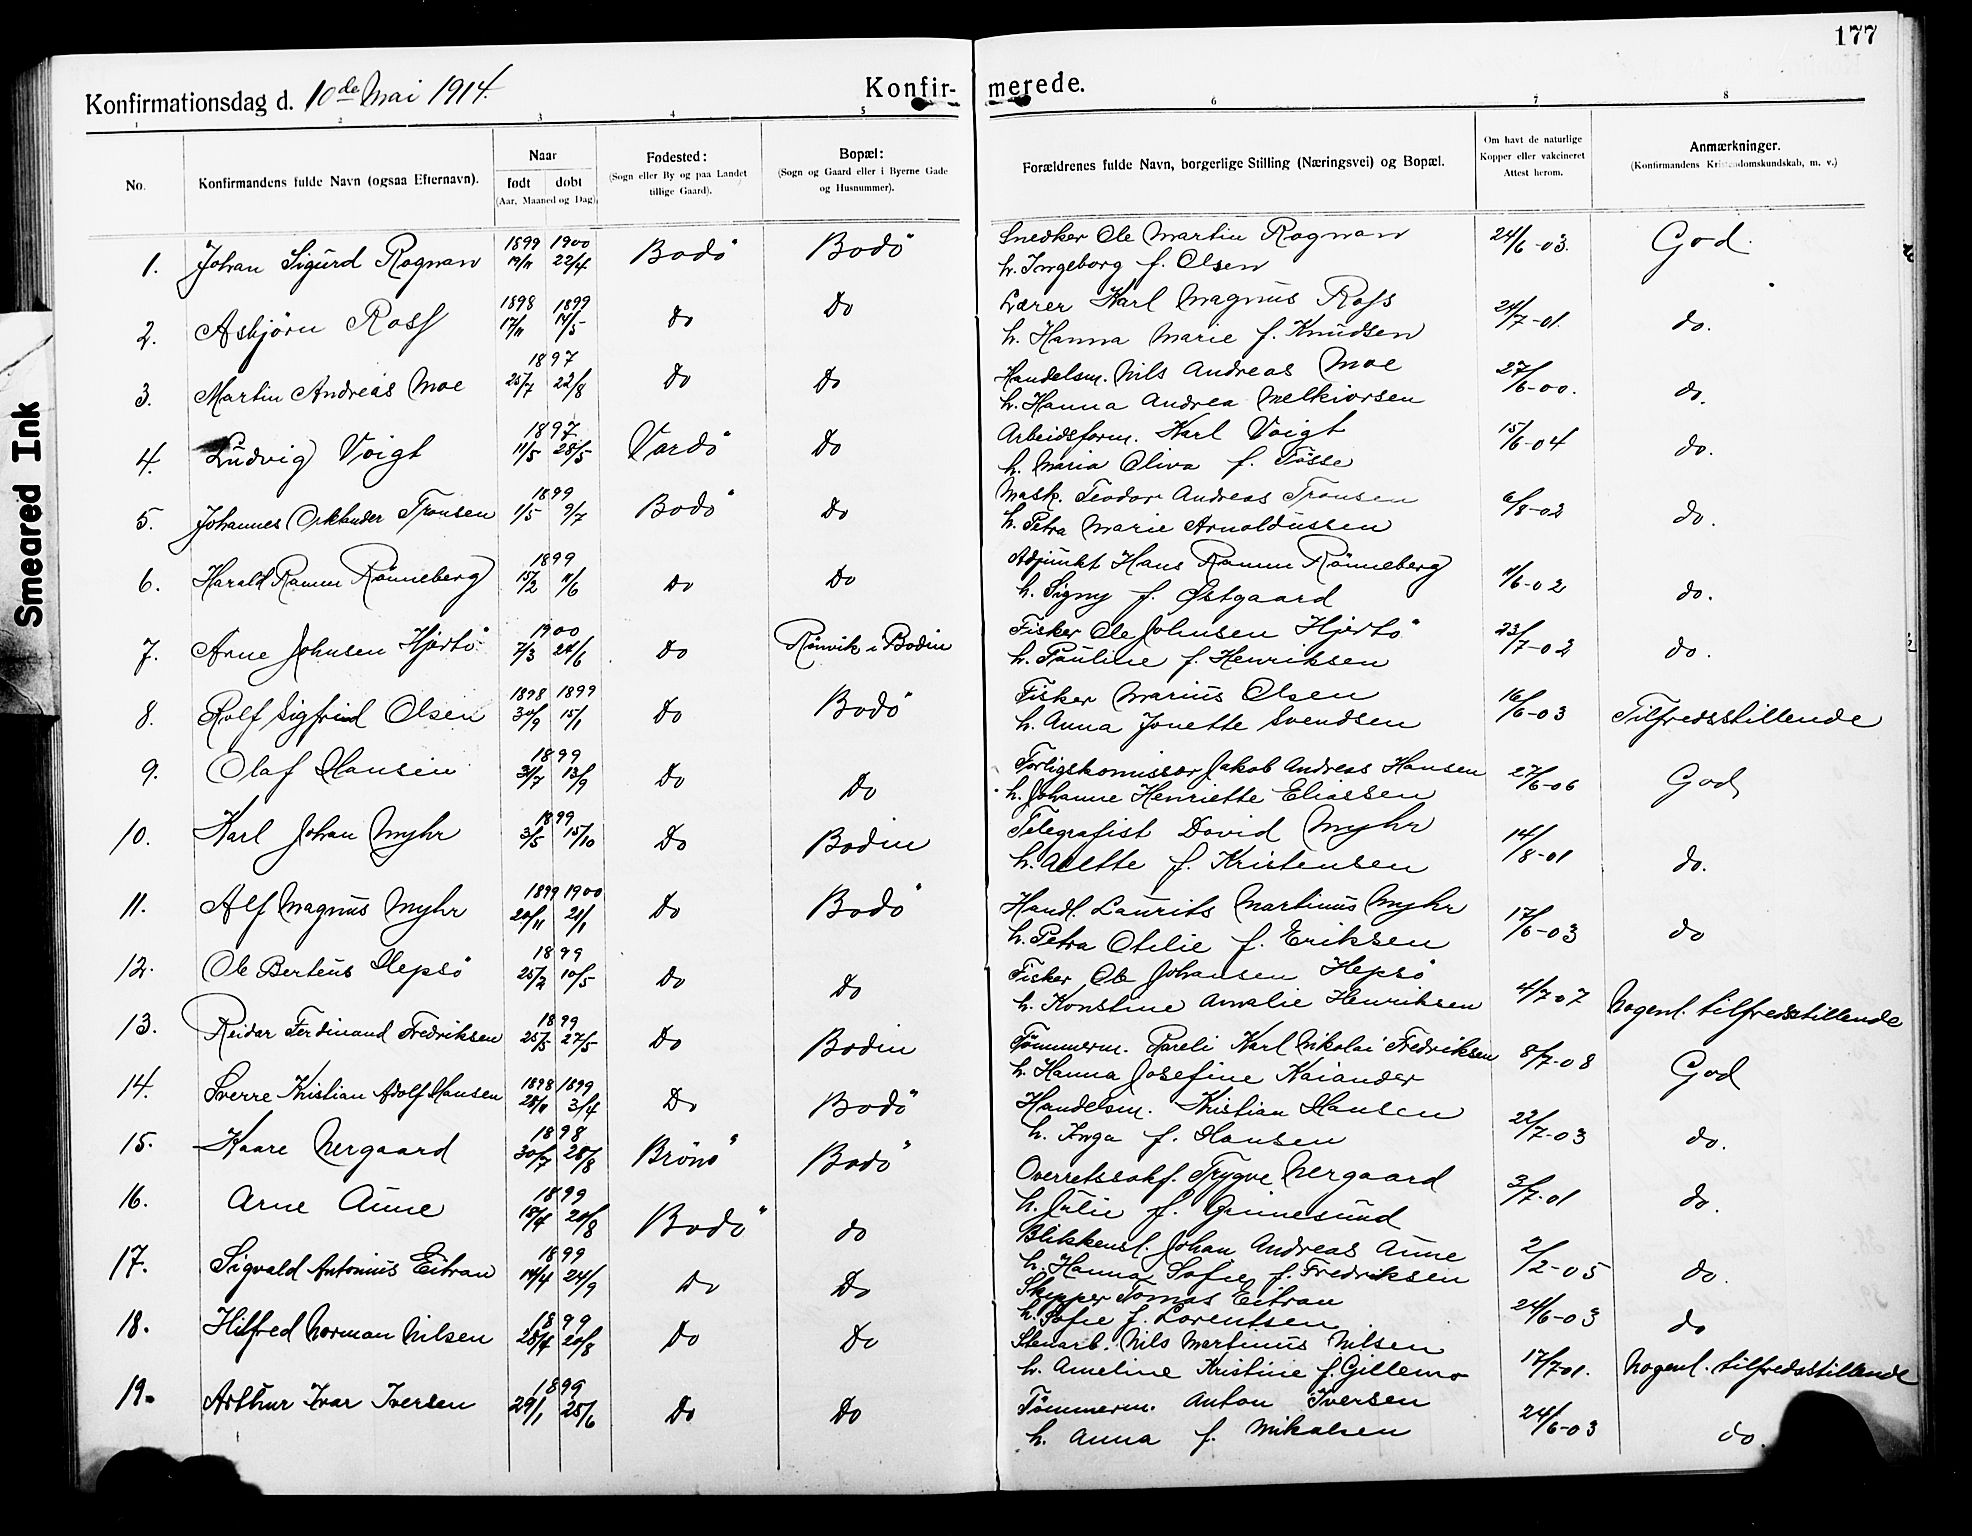 177
Smeared Ink
Konfirmationsdag d. 10de Mai 1914.
Konfir- merede.
1 2 3 4 5 6 7 8
No.
Konfirmandens fulde Navn (ogsaa Efternavn).
Naar
født døbt
(Aar, Maaned og Dag).
Fødested:
(Sogn eller By og paa Landet
tillige Gaard).
Bopæl:
(Sogn og Gaard eller i Byerne Gade
og Husnummer).
Forældrenes fulde Navn, borgerlige Stilling (Næringsvei) og Bopæl.
Om havt de naturlige
Kopper eller vakcineret
Attest herom.
Anmærkninger.
(Konfirmandens Kristendomskundskab, m. v.)
1899 1900
1. Johan Sigurd Rognan 19/11 22/4 Bodö Bodö
Snedker Ole Martin Rognan
h. Ingeborg f. Olsen
24/6-03. God.
1898 1899
2. Asbjörn Ross 17/11 14/5 Do Do
Lærer Karl Magnus Ross
h. Hanna Marie f. Knudsen
24/7-01. do.
1897
3. Martin Andreas Moe 25/7 22/8 Do Do
Handelsm. Nils Andreas Moe
h. Hanna Andrea Melkiorsen
27/6-00. do.
1897
4. Ludvig Voigt 11/5 28/5 Vardö Do
Arbeidsform. Karl Voigt
h. Maria Oliva f. Tösse
15/6-04 do.
1899
5. Johannes Orklander Tronsen 1/5 9/7 Bodö Do
Mask. Teodor Andreas Tronsen
h. Petra Marie Arnoldussen
6/8-02 do.
1899
6. Harald Ramm Rönneberg 15/2 11/6 Do Do
Adjunkt Hans Ramm Rönneberg
h. Signy f. Østgaard
11/6-02 do.
1900
7. Arne Johnsen Hjertö 7/3 24/6 Do Rönvik i Bodin
Fisker Ole Johnsen Hjertö
h. Pauline f. Henriksen
23/7-02 do.
1898 1899
8. Rolf Sigfried Olsen 30/9 15/1 Do Bodö
Fisker Marius Olsen
h. Anna Jonette Svendsen
16/6-03 Tilfredsstillende
1899
9. Olaf Hansen 31/7 13/9 Do Do
Forligskomissær Jakob Andreas Hansen
h. Johanne Henriette Eliassen
27/6-06 God
1899
10. Karl Johan Myhr 3/5 15/10 Do Bodin
Telegrafist David Myhr
h. Alette f. Kristensen
14/8-01 do.
1899 1900
11. Alf Magnus Myhr 20/11 21/1 Do Bodö
Handl. Laurits Martinus Myhr
h. Petra Otilie f. Eriksen
17/6-03 do
1899
12. Ole Berteus Hepsö 25/2 10/5 Do Do
Fisker Ole Johansen Hepsö
h. Konstine Amalie Henriksen
4/7 07 Nogenl. tilfredsstillende
1899
13. Reidar Ferdinand Fredriksen 25/3 27/5 Do Bodin
Tömmerm. Pareli Karl Nikolai Fredriksen
h. Hanna Josefine Kaiander
8/7-08 God
1898 1899
14. Sverre Kristian Adolf Hansen 28/11 3/4 Do Bodö
Handelsm. Kristian Hansen
h. Inga f. Hansen
22/7-03 do.
1898
15. Kaare Nergaard 30/7 28/8 Brönö Bodö
Overretssakf. Trygve Nergaard
h. Julie f. Grinnesund
3/7-01 do.
1899
16. Arne Aune 15/4 20/8 Bodö do
Blikkensl. Johan Andreas Aune
h. Hanna Sofie f. Fredriksen
2/2-05 do.
1899
17. Sigvald Antonius Eitran 14/4 24/9 Do Do
Skipper Tomas Eitran
h. Sofie f. Lorentsen
24/6-03 do
1899
18. Hilfred Norman Nilsen 28/4 20/8 Do Do
Stenarb. Nils Martinus Nilsen
h. Ameline Kristine f. Gillemo
17/7 01. Nogenl. tilfredsstillende
1899
19. Arthur Ivar Iversen 29/1 25/6 Do Do
Tömmerm. Anton Iversen
h. Anna f. Mikalsen
24/6-03 do.